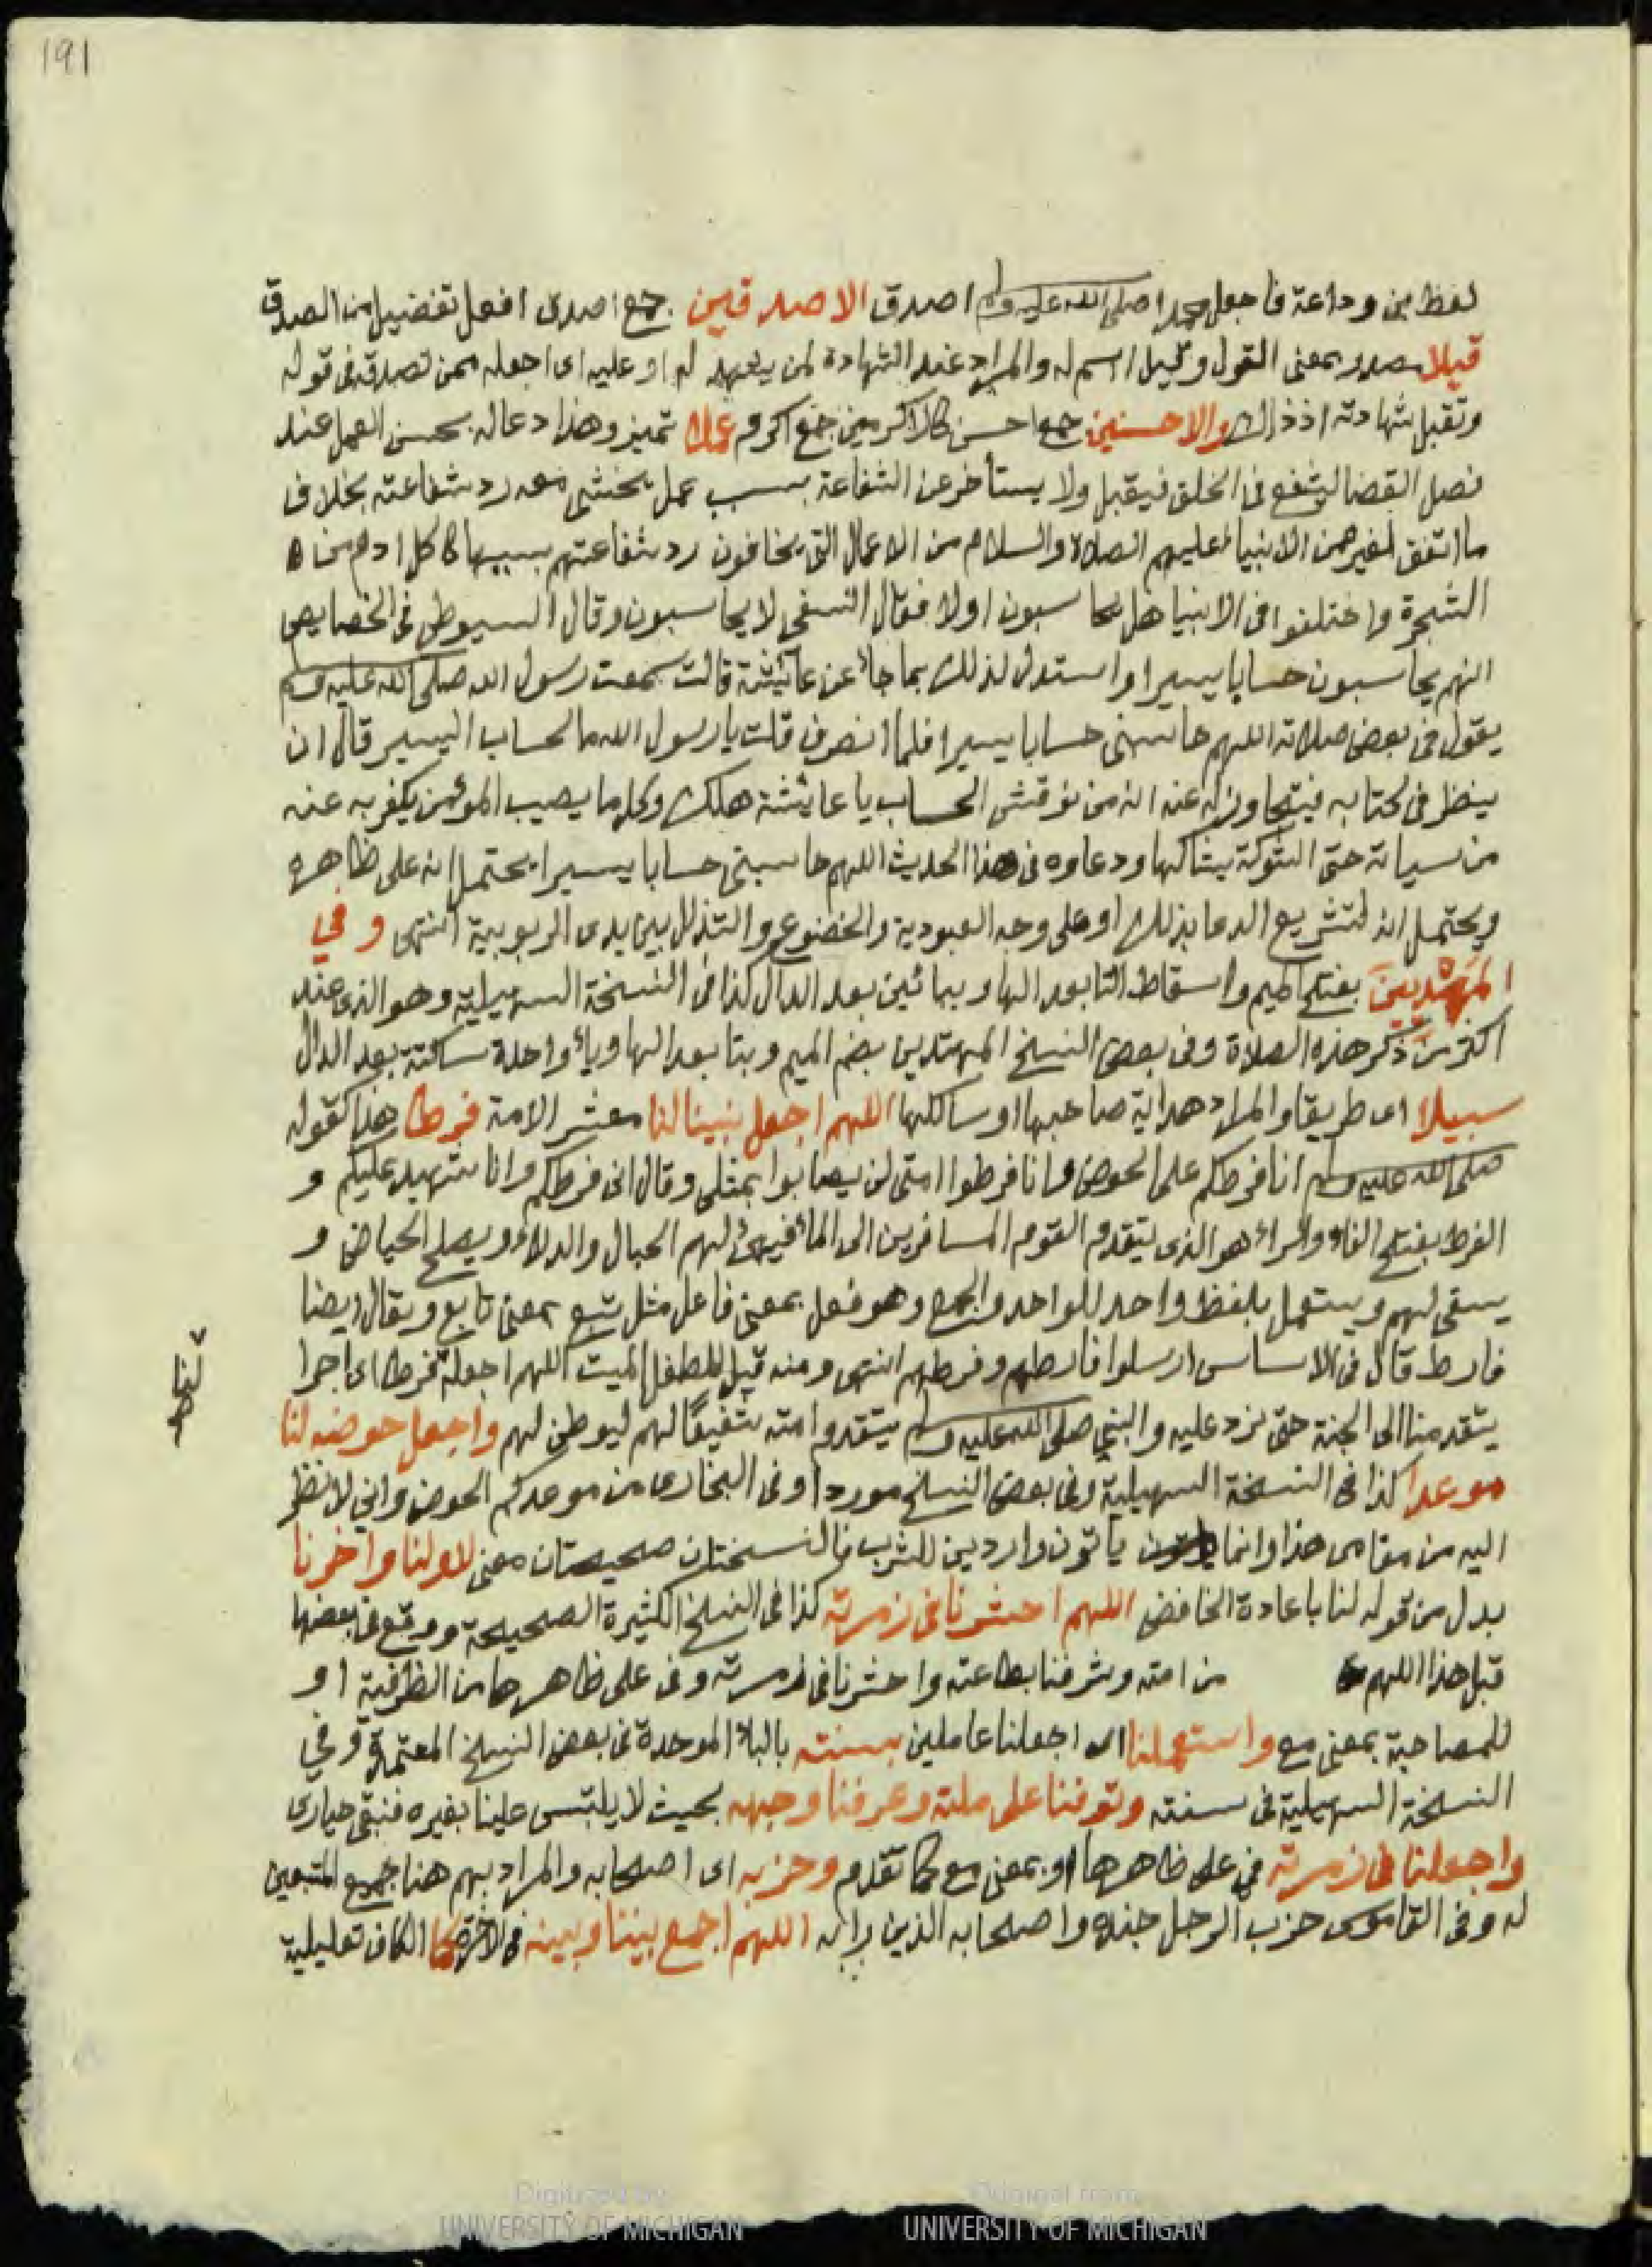 191
لفظ بن وداعة فاجعل محمدا صلى الله عليه وسلم اصدق الاصدقين جمع اصدق افعل تفضيل من الصدق
قيلا مصدر بمعنى القول وقيل اسم له والمراد عند الشهادة لمن يشهد له او عليه اى اجعله ممن تصدقه فى قوله
وتقبل شهادته اذ ذاك والاحسنين جمع احسن كالاكرمين جمع اكرم عملا تمييز وهذا دعا له بحسن العمل عند
فصل القضا ليشفع فى الخلق فيقبل ولا يستأخر عن الشفاعة بسبب عمل يخشى معه رد شفاعته بخلاف
ما اتفق لغيره من الانبياء عليهم الصلاة والسلام من الاعمال التى يخافون رد شفاعتهم بسببها كاكل ادم من
الشجرة واختلفوا فى الانبيا هل يحاسبون اولا فقال النسفى لا يحاسبون وقال السيوطى فى الخصايص
انهم يحاسبون حسابا يسيرا واستدل لذلك بما جاء عن عائشة قالت سمعت رسول الله صلى الله عليه وسلم
يقول فى بعض صلاته اللهم حاسبنى حسابا يسيرا فلما انصرف قلت يا رسول الله ما الحساب اليسير قال ان
ينظر فى كتابه فيتجاوز له عنه انه من نوقش الحساب يا عائشة هلك وكلما يصيب المؤمن يكفر به عنه
من سياته حتى الشوكة يشاكها ودعاوه فى هذا الحديث اللهم حاسبنى حسابا يسيرا يحتمل انه على ظاهره
ويحتمل انه لتشريع الدعا بذلك او على وجه العبودية والخضوع والتذلل بين يدى الربوبية انتهى وفي
المَهْدِيِّينَ بفتح الميم واسقاط التا بعد الها وبيائين بعد الدال كذا فى النسخة السهيلية وهو الذى عند
اكثر من ذكر هذه الصلاة وفى بعض النسخ المهتدين بضم الميم وبتا بعد الها وياء واحدة ساكنة بعد الدال
سبيلا اى طريقا والمراد هداية صاحبها او سالكها اللهم اجعل نبينا لنا معشر الامة فرطا هذا كقوله
صلى الله عليه وسلم انا فرطكم على الحوض وانا فرطوا امتى لن يصابوا بمثلى وقال انى فرطكم وانا شهيد عليكم و
الفرط بفتح الفاء والراء هو الذى يتقدم القوم المسافرين الى الماء فيهيئ لهم الحبال والدلاء ويصلح الحياض و
يسقى لهم ويستعمل بلفظ واحد للواحد والجمع وهو فعل بمعنى فاعل مثل تبع بمعنى تابع ويقال ايضا
فارط قال فى الاساس ارسلوا فارطهم وفرطهم انتهى ومنه قيل للطفل الميت اللهم اجعله فرطا اى اجرا
يتقدمنا الى الجنة حتى نرد عليه والنبي صلى الله عليه وسلم يتقدم امته شفيعًا لهم ليوطن لهم واجعل حوضه لنا
موعدا كذا فى النسخة السهيلية وفى بعض النسخ موردا وفى البخارى من موعدكم الحوض واني لانظر
اليه من مقامى هذا وانما ياتون واردين للشرب فالنسختان صحيحتان معنى لاولنا واخرنا
بدل من قوله لنا باعادة الخافض اللهم احشرنا فى زمرته كذا فى النسخ الكثيرة الصحيحة ووقع فى بعضها
قبل هذا اللهم من امته وشرفنا بطاعته واحشرنا فى زمرته وفى على ظاهرها من الظرفية او
للمصاحبة بمعنى مع واستعملنا اى اجعلنا عاملين بسنته بالباء الموحدة فى بعض النسخ المعتمدة وفي
النسخة السهيلية فى سنته وتوفنا على ملته وعرفنا وجهه بحيث لا يلتبس علينا بغيره فنبقى حيارى
واجعلنا فى زمرته فى على ظاهرها او بمعنى مع كما تقدم وحزبه اى اصحابه والمراد بهم هنا جميع المتبعين
له وفى القاموس حزب الرجل جنده واصحابه الذين رايه اللهم اجمع بيننا وبينه فى الاخرة كما الكاف تعليلية
Digitized by
UNIVERSITY OF MICHIGAN
Original from
UNIVERSITY OF MICHIGAN